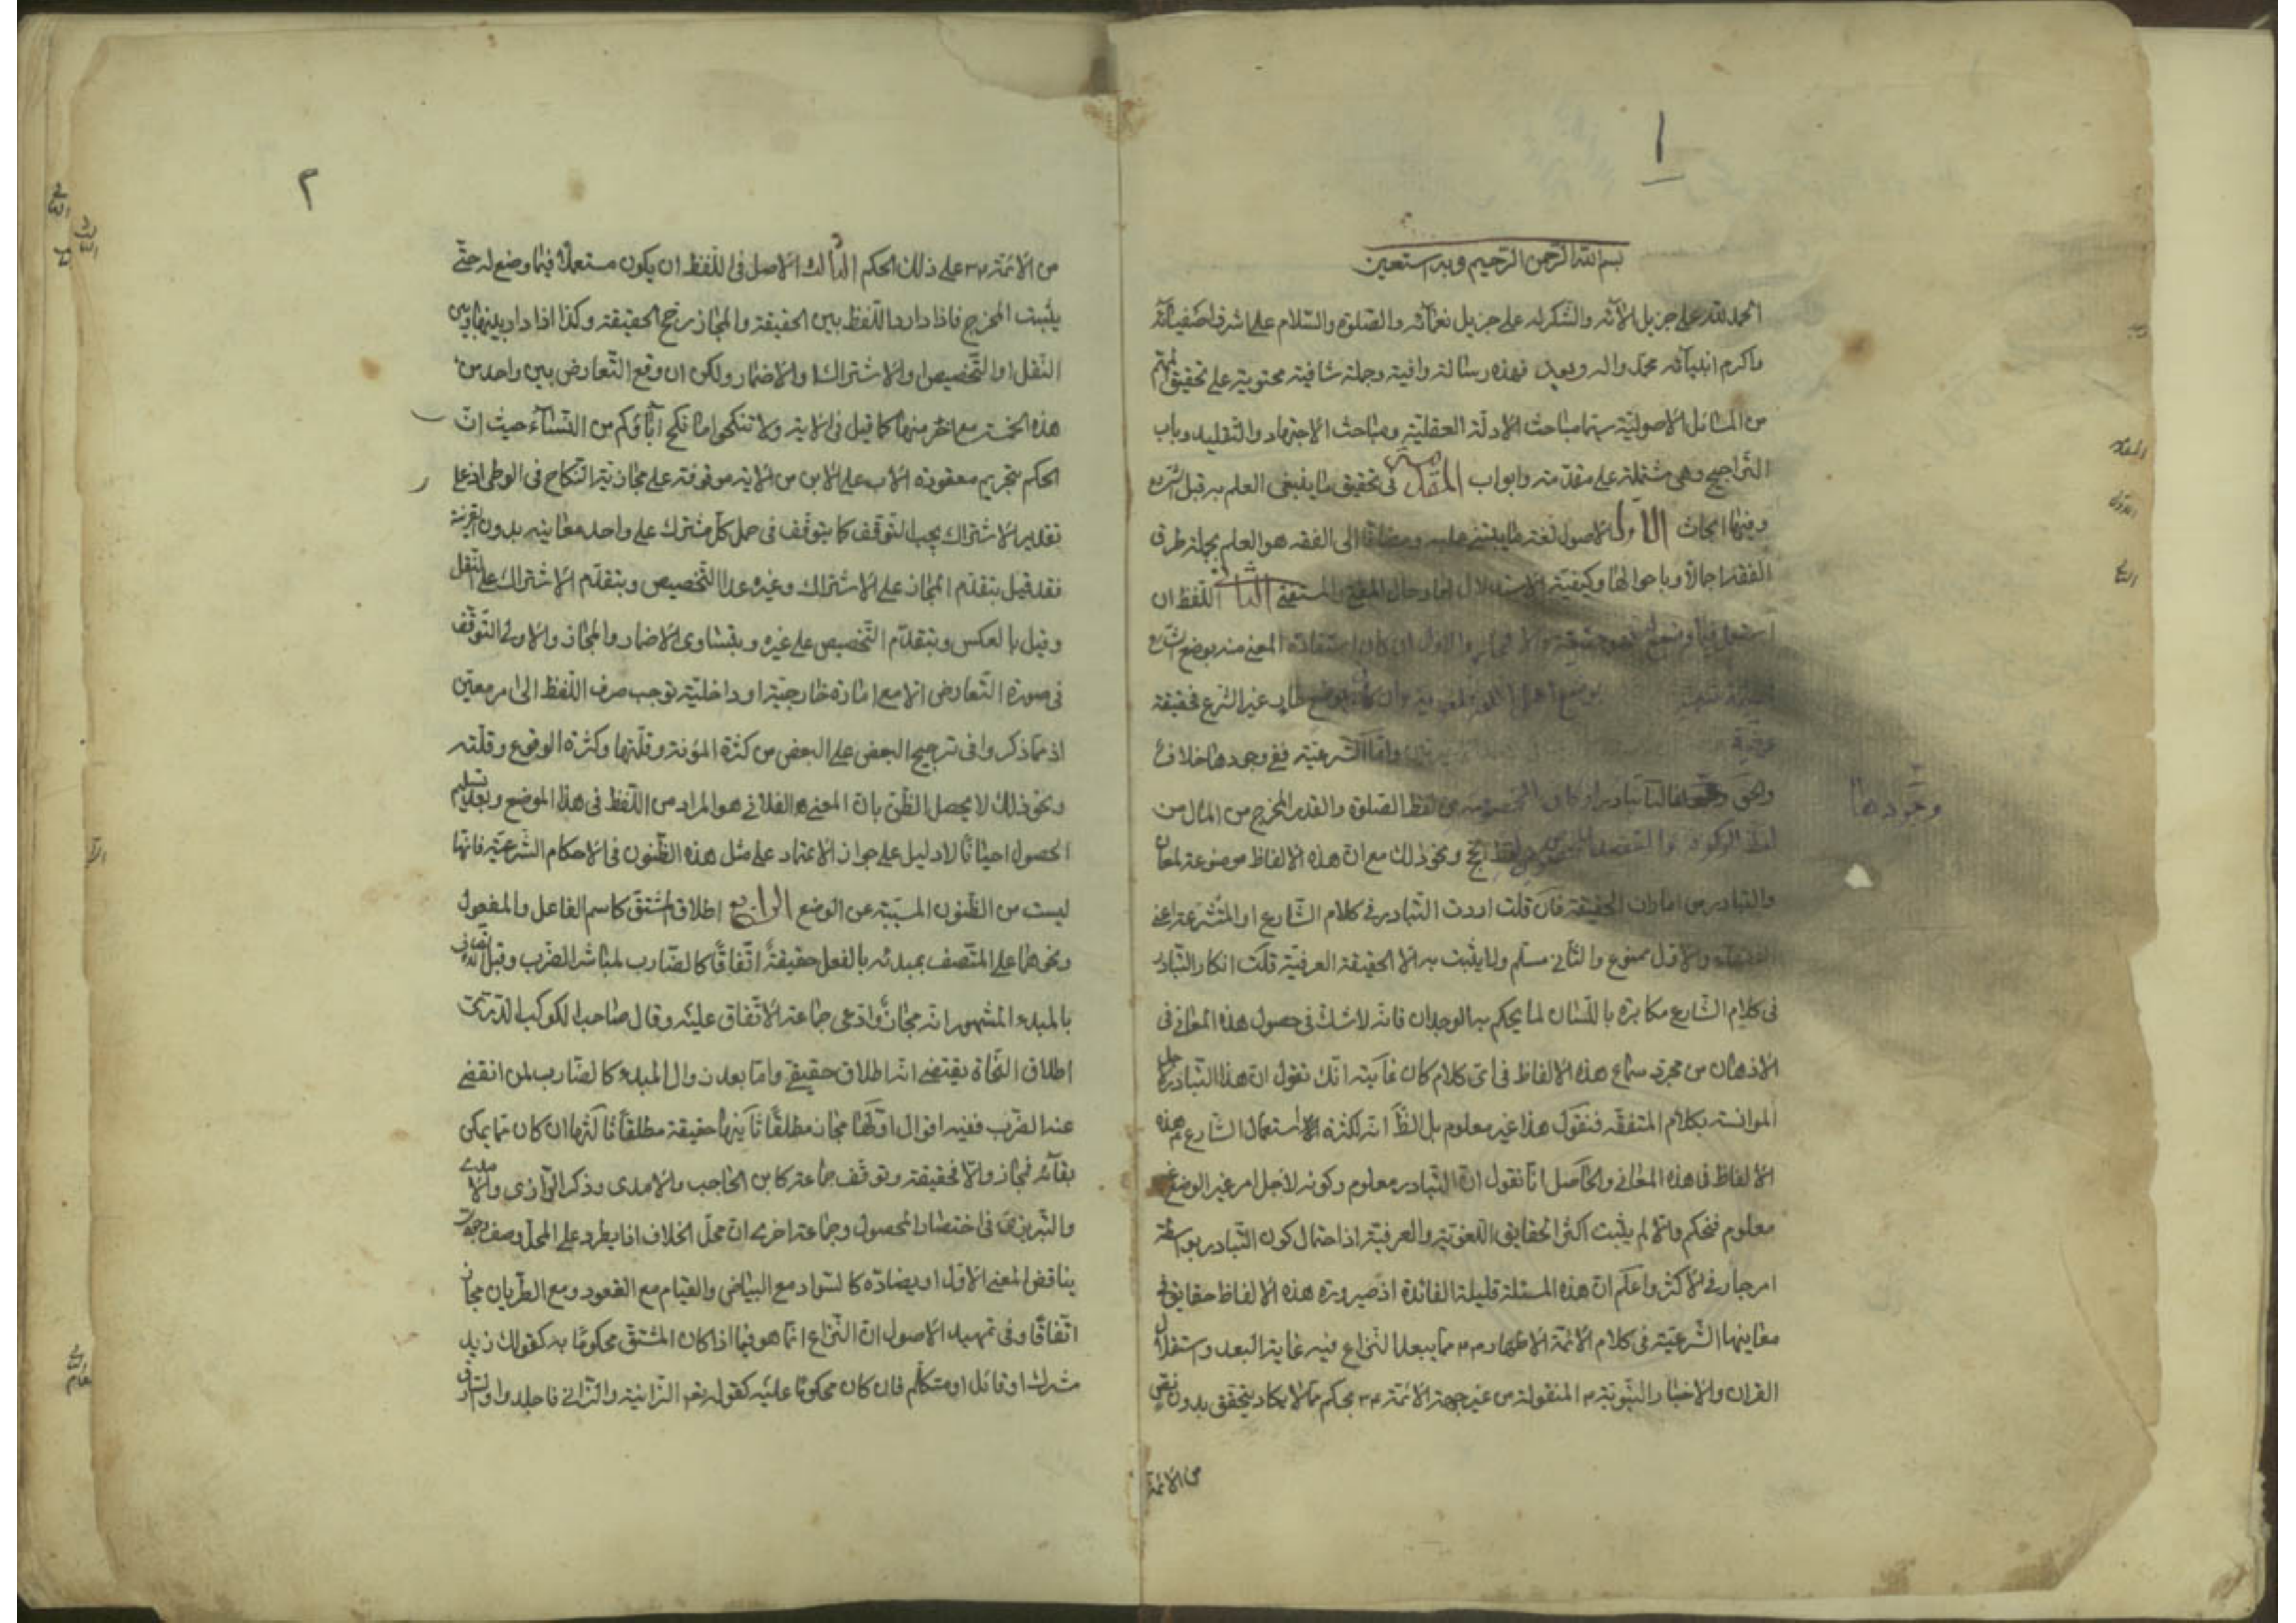 ١
بسم الله الرحمن الرحيم وبه نستعين
الحمد لله على جزيل الآئه والشكر له على جزيل نعمآئه والصّلوة والسّلام على اشرف اصفيآئه
واكرم انبيآئه محمّد واله وبعد فهذه رسالة وافية وجملة شافية محتوية على تحقيق المهمّ
من المسائل الاصوليّة سيّما مباحث الادلّة العقليّة ومباحث الاجتهاد والتقليد وباب
التّراجيح وهى مشتملة على مقدّمة وابواب المقدّمة فى تحقيق ما ينبغى العلم به قبل الشّروع
وفيها ابحاث الاول الاصول لغة ما يبتنى عليه ومضافًا الى الفقه هو العلم بجملة طرق
الفقه اجمالا وباحوالها وكيفيّة الاستدلال بها وحال المفتى والمستفتى الثانى اللّفظ ان
استعمل فيما وضع له فهو حقيقة والّا فمجاز والاول ان كان استفادة المعنى منه بوضع الشّارع
بوضع اهل اللغة فلغوية وان كان بوضع طارٍ غير الشّرع فحقيقة
عرفية وامّا الشّرعيّة ففى وجودها خلاف
والحق وجودها لنا تبادر الاركان المخصوصة من لفظ الصّلوة والقدر المخرج من المال من
لفظ الزكوة والقصد المخصوص من لفظ الحج ونحو ذلك مع انّ هذه الالفاظ موضوعة لمعان
والتبادر من امارات الحقيقة فان قلت اردت التّبادر فى كلام الشّارع او المتشرّعة اعنى
الفقهاء والاوّل ممنوع والثّانى مسلّم ولا يثبت به الّا الحقيقة العرفيّة قلت انكار التّبادر
فى كلام الشّارع مكابرة باللّسان لما يحكم به الوجدان فانّه لا شكّ فى حصول هذه المعانى فى
الاذهان من مجرّد سماع هذه الالفاظ فى اىّ كلام كان غآيته انّك تقول انّ هذا التّبادر لاجل
الموانسة بكلام المتفقّهة فنقول هذا غير معلوم بل الظّ انّه لكثرة استعمال الشّارع هذه
الالفاظ فى هذه المعانى والحاصل انّا نقول انّ التّبادر معلوم وكونه لاجل امر غير الوضع غير
معلوم فنحكم والّا لم يثبت اكثر الحقايق اللّغويّة والعرفيّة اذ احتمال كون التّبادر بواسطة
امر جار فى الاكثر واعلم انّ هذه المسئلة قليلة الفائدة اذ صيرورة هذه الالفاظ حقايق فى
معانيها الشّرعيّة فى كلام الائمّة الاطهار م م ممّا يبعد النّزاع فيه غاية البعد واستقلال
القران والاخبار النّبويّة م المنقولة من غير جهة الائمّة م م بحكم ممّا لا يكاد يتحقق بدون نصّ
من الائمّة
وجودها
٢
من الائمّة م م على ذلك الحكم الثالث الاصل فى اللّفظ ان يكون مستعملًا فيما وضع له حتّى
يثبت المخرج فاذا دار اللّفظ بين الحقيقة والمجاز رجح الحقيقة وكذا اذا دار بينها وبين
النّقل او التّخصيص او الاشتراك او الاضمار ولكن ان وقع التّعارض بين واحد من
هذه الخمسة مع اخر منها كما قيل فى الاية ولا تنكحوا ما نكح آباؤكم من النّسآء حيث انّ
الحكم بتحريم معقودة الاب على الابن من الاية موقوفة على مجازيّة النّكاح فى الوطى اذ على
تقدير الاشتراك يجب التوقّف كما يتوقّف فى حمل كلّ مشترك على واحد معانيه بدون القرينة
فقد قيل بتقدّم المجاز على الاشتراك وغيره عدا التّخصيص وبتقدّم الاشتراك على النّقل
وقيل بالعكس وبتقدّم التّخصيص على غيره وبتساوى الاضمار والمجاز والاولى التّوقّف
فى صورة التّعارض الّا مع امارة خارجيّة او داخليّة توجب صرف اللّفظ الى امر معيّن
اذ ممّا ذكروا فى ترجيح البعض على البعض من كثرة المؤنة وقلّتها وكثرة الوقوع وقلّته
ونحو ذلك لا يحصل الظّن بانّ المعنى الفلانى هو المراد من اللّفظ فى هذا الموضع وبعد تسليم
الحصول احيانًا لا دليل على جواز الاعتماد على مثل هذه الظّنون فى الاحكام الشّرعيّة فانّها
ليست من الظّنون المسبّبة عن الوضع الرابع اطلاق المشتق كاسم الفاعل والمفعول
ونحوهما على المتّصف بمبدئه بالفعل حقيقةً اتّفاقًا كالضّارب لمباشر الضّرب وقبل اتّصافه
بالمبدء المشهور انّه مجازٌ وادّعى جماعة الاتّفاق عليه وقال صاحب الكوكب الدّرىّ
اطلاق النّحاة يقتضى انّه اطلاق حقيقى وامّا بعد زوال المبدء كالضّارب لمن انقضى
عنه الضّرب ففيه اقوال اوّلها مجاز مطلقًا ثانيها حقيقة مطلقًا ثالثها ان كان ممّا يمكن
بقآئه فمجاز والّا فحقيقة وتوقّف جماعة كابن الحاجب والامدى وذكر الرّازى والامدى
والتّبريزى فى اختصار المحصول وجماعة اخرى انّ محلّ الخلاف اذا لم يطرء على المحلّ وصف وجودى
يناقض المعنى الاوّل او يضادّه كالسّواد مع البياض والقيام مع القعود ومع الطّريان مجاز
اتّفاقًا وفى تمهيد الاصول انّ النّزاع انّما هو فيما اذا كان المشتقّ محكومًا به كقولك زيد
مشرك او قاتل او متكلّم فان كان محكومًا عليه كقوله تع الزّانية والزّانى فاجلدوا والسّارق